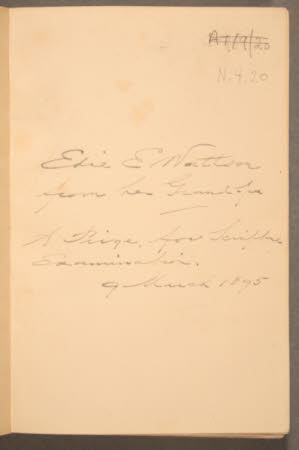 N.4.20
Edie E Wattson
from her Grandpa
A Prize for Scripture
Examination.
9 March 1895